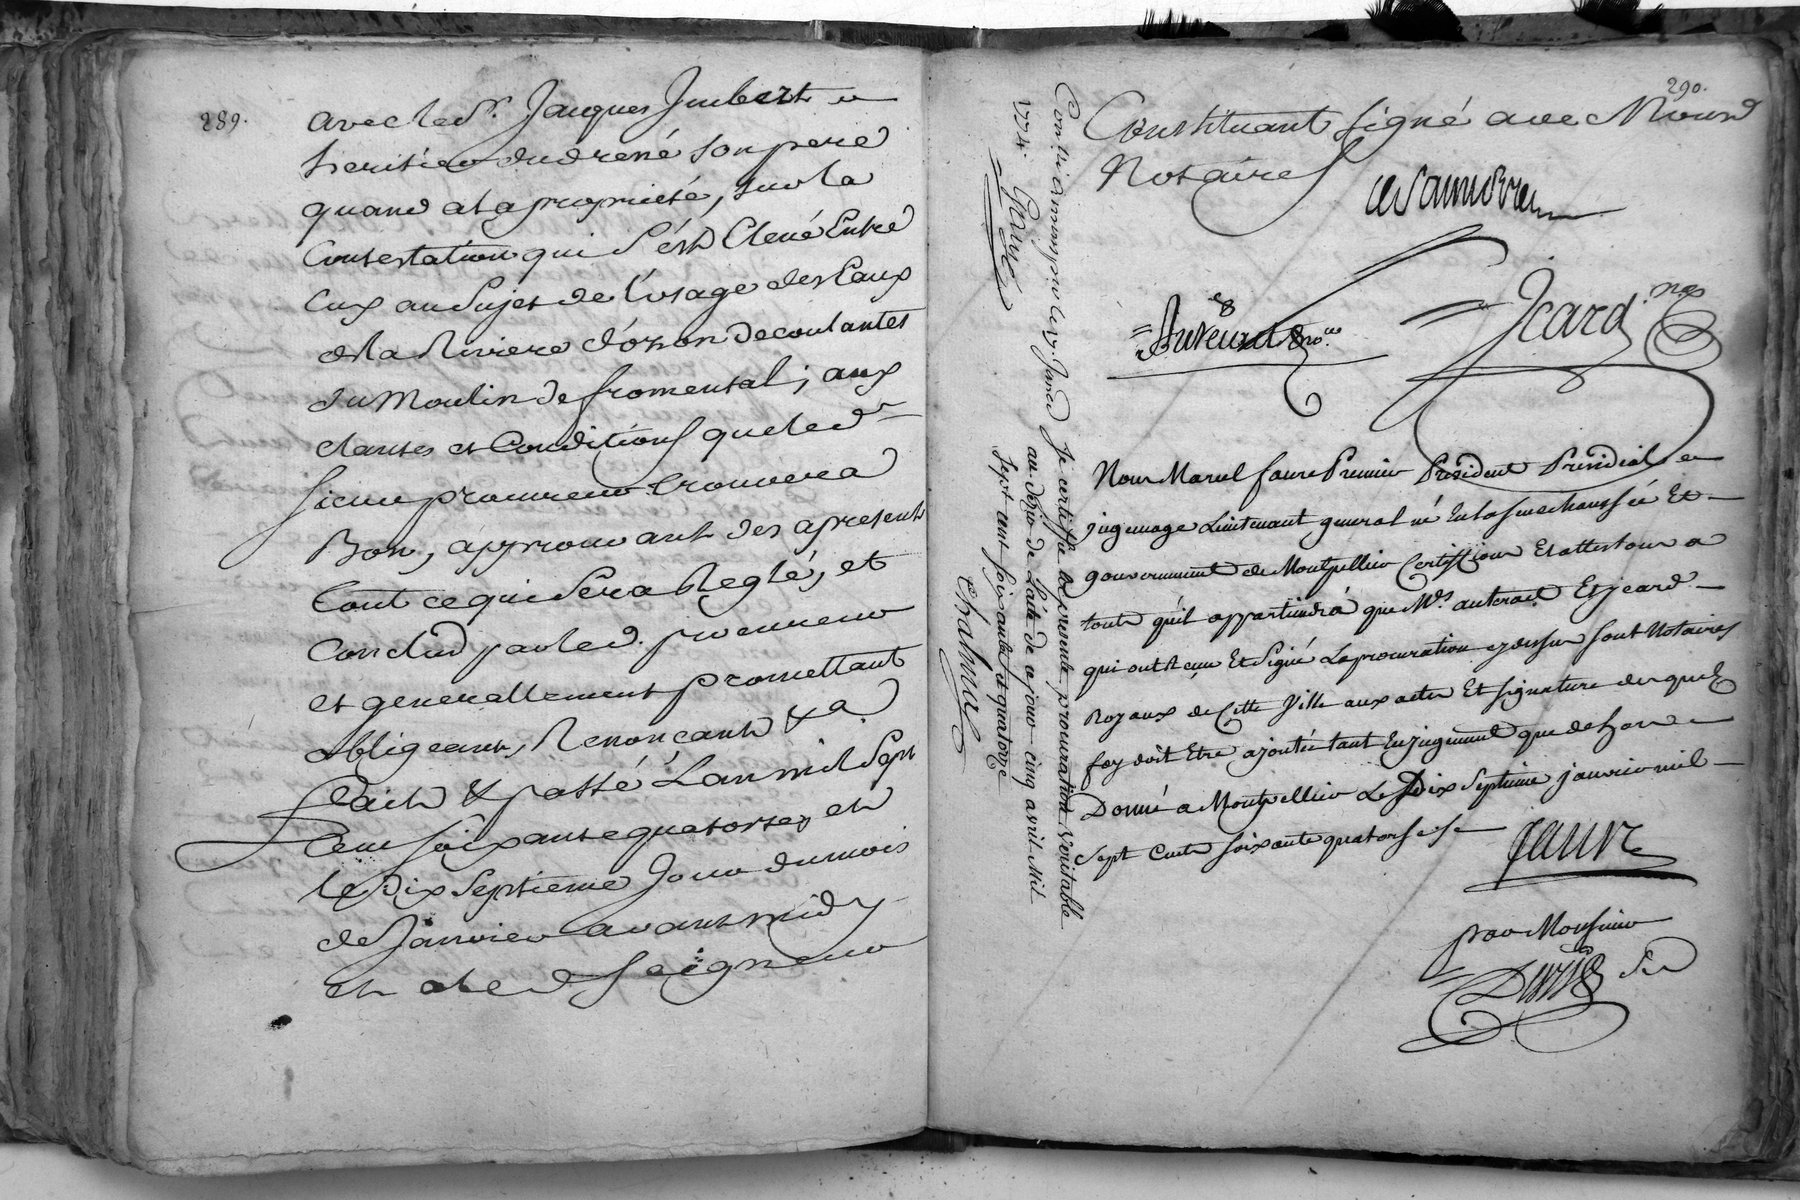 289.
avec led. Sr. Jacques Imbert
heritier dud rené son pere
quand a la proprieté, sur la
Contestation qui S'est Elevé Entre
Eux au Sujet de l'usage des Eaux
de la Riviere d'orson decoulantes
du Moulin de fromental; aux
clauses et Conditions que led
sieur procureur trouvera
Bon, approuvant des apresent
tout ce qui Sera Reglé, et
Conclud par led. procureur
et generallement promettant
obligeant, Renonçant &a
Fait & passé Lan mil Sept
Cent soixante quatorze, et
le dix Septieme Jour du mois
de Janvier avant midy
et led Seigneur
290.
Constituant signé avec Nous
Notaires
Icard
Nous Marcel faure Premier President Presidial
Juge mage Lieutenant general né En la senechaussée Et
gouvernement de Montpellier Certiffions Et attestons a
touts qu'il appartiendra que Mes. auterac Et jcard
qui ont Recu Et Signé La procuration cy dessus sont Notaires
Royaux de Cette Ville aux actes Et signature desquels
foy doit Etre ajoutée tant En jugement que dehors
Donné a Montpellier Le Dix Septieme janvier mil
Sept Cents soixante quatorse
faure
par Monsieur
1774.
Je certiffie la presente procuration veritable
au desir de l'acte de ce jour cinq avril Mil
sept cent soixante et quatorze
Chalmas